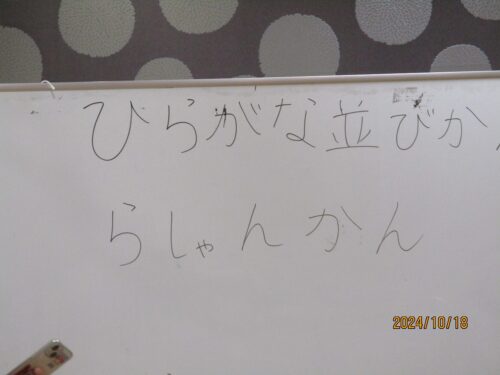 ひらがな並びか
らしゃんかん
2024/10/18